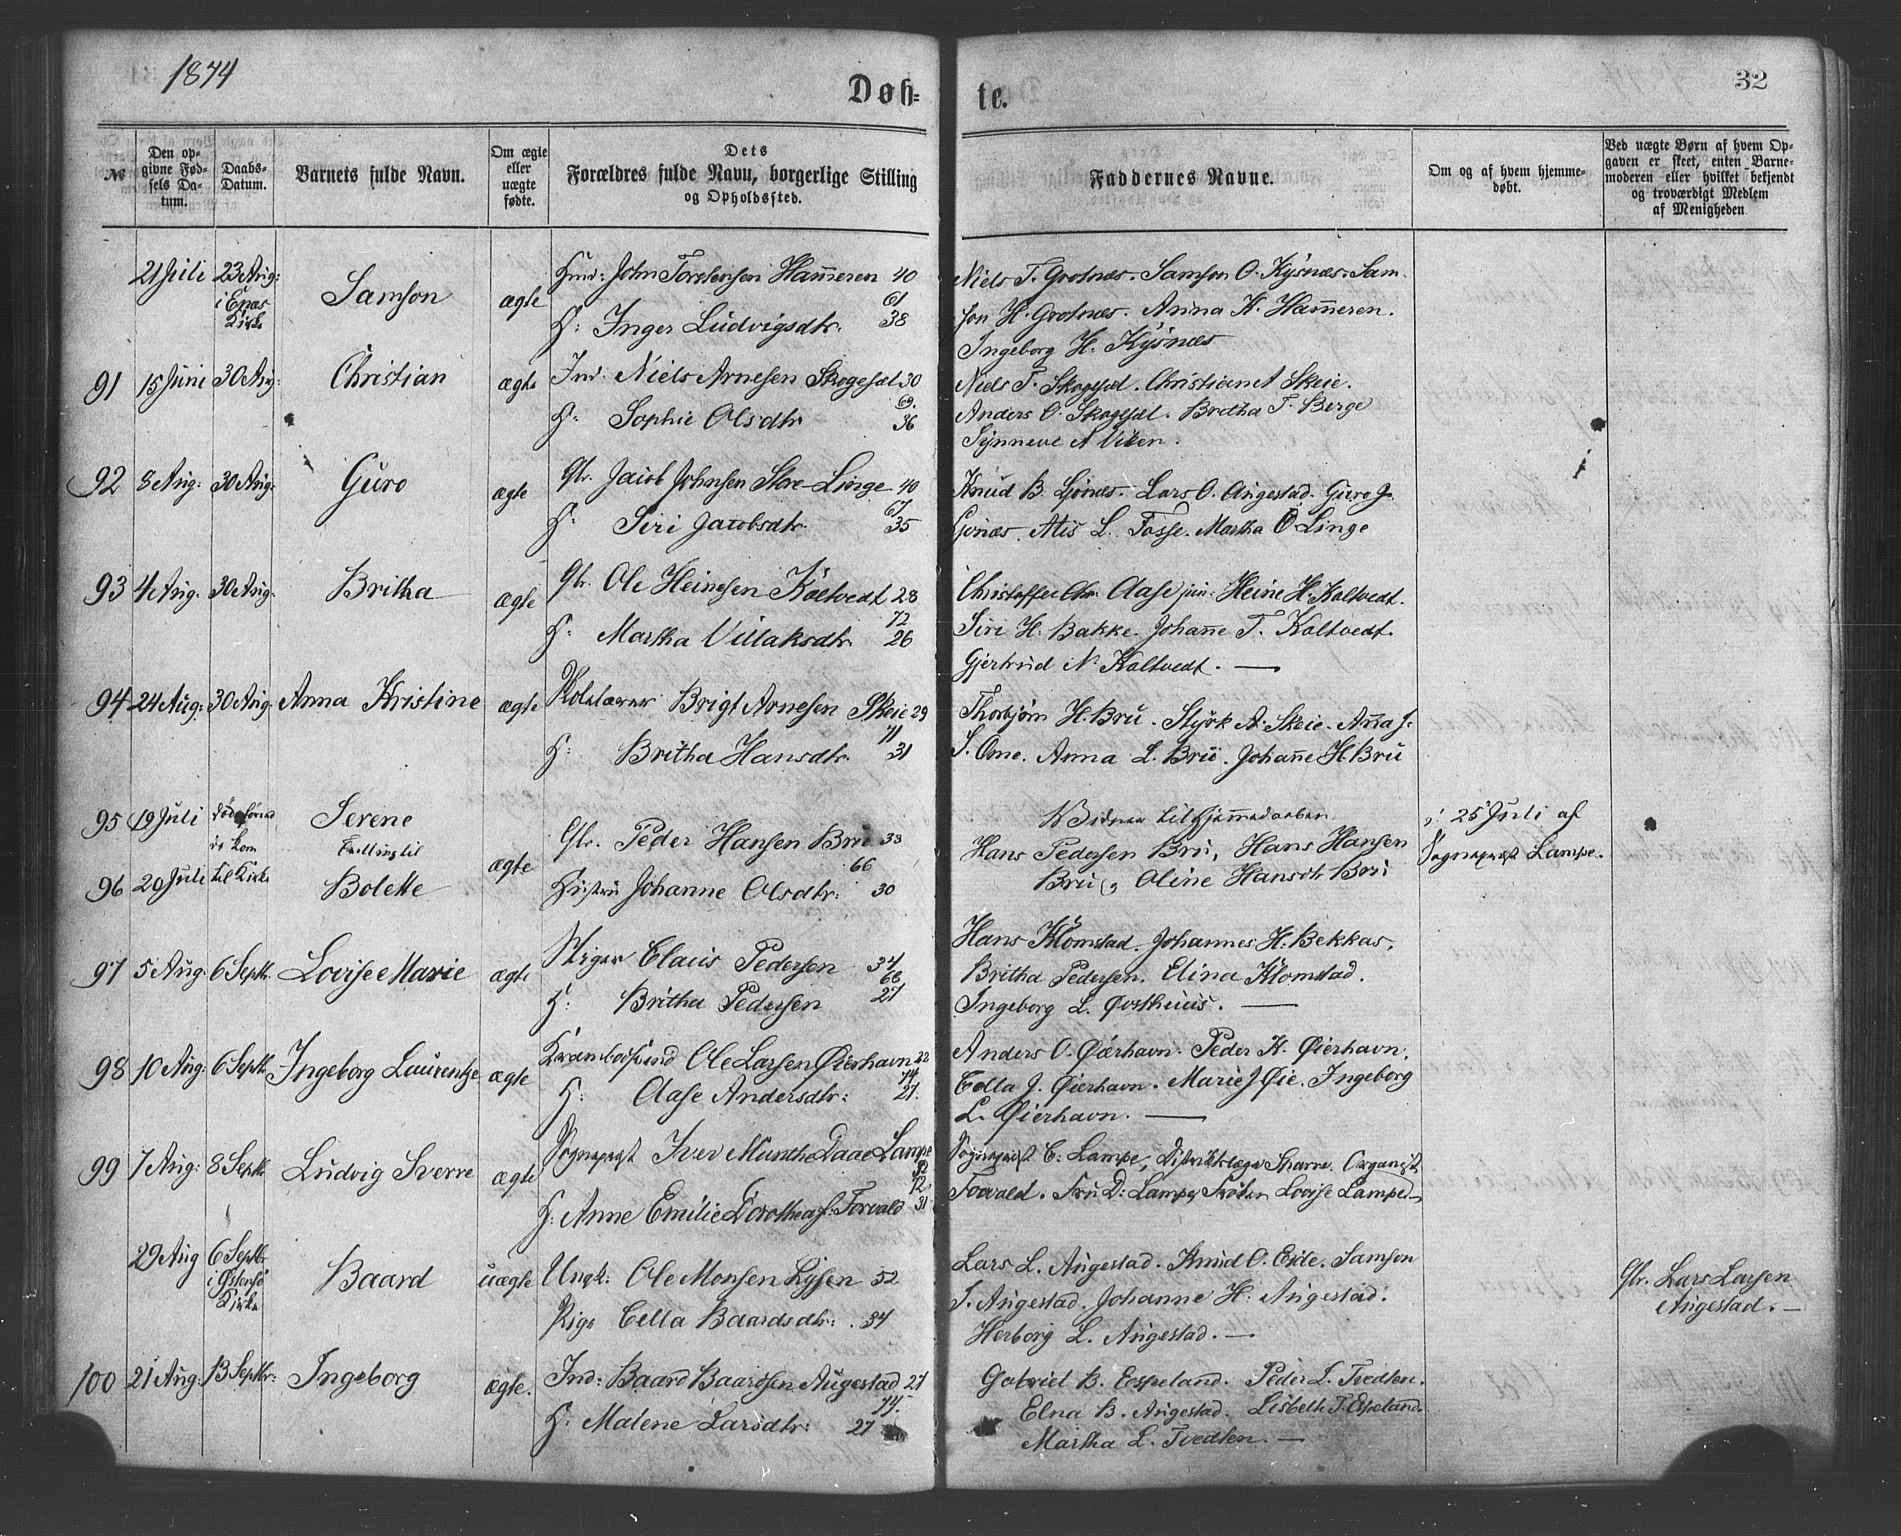 1874
Døb=
te.
32
№
Den op-
givne Fød-
sels Da-
tum.
Daabs-
Datum.
Barnets fulde Navn.
Om ægte
eller
uægte
fødte.
Dets
Forældres fulde Navn, borgerlige Stilling
og Opholdssted.
Faddernes Navne.
Om og af hvem hjemme-
døbt.
Ved uægte Børn af hvem Op-
gaven er skeet, enten Barne-
moderen eller hvilket bekjendt
og troværdigt Medlem
af Menigheden
21 Juli 23 Aug: i Kirke Samson ægte John Torstensen Hammeren 40
61
H: Inger Ludvigsdtr. 38
Niels T. Grotnæs. Samson O. Kysnæs. Sam-
son H. Grotnæs. Anna K. Hammeren.
Ingeborg H. Kysnæs
91 15 Juni 30 Aug: Christian ægte Ind. Niels Arnesen Skogesæl 30
69.
H: Sophie Olsdtr 36
Niels T. Skogesæl. Christian A Skeie.
Anders O. Skogesæl. Britha T. Berge
Synneve A Viken.
92 8 Aug: 30 Aug: Guro ægte Gbr. Jacob Johnsen Store-Linge 40
67
H: Siri Jacobsdtr. 35
Knud B. Ljønæs. Lars O. Augestad. Guro J.
Ljonæs. Alis L. Fosse. Martha O Linge
93 4 Aug. 30 Aug. Britha ægte Gbr. Ole Heinesen Kaltvedt 28
72
H: Martha Villaksdtr. 26
Christoffer Chr. Aase jun: Heine H. Kaltvedt.
Siri H. Bakke. Johanne T. Kaltvedt.
Gjertrud N. Kaltvedt. —
94 24 Aug: 30 Aug. Anna Kristine ægte Brigt Arnesen Skeie 29
71
H: Britha Hansdtr. 31
Thorbjørn H. Bru. Styrk A. Skeie. Anna J.
S. Ome. Anna L. Bru. Johanne H. Bru
95 19 Juli Serene
Tvillinger til
96 20 Juli til Kirke Bolette
ægte
Gbr. Peder Hansen Bru 33
66
Hustru Johanne Olsdtr: 30
Vidner til Hjemmedaaben
Hans Pedersen Bru, Hans Hansen
Bru, Oline Hansdt Bru
25 Juli af
Sognepræst Lampe.
97 5 Aug: 6 Septb. Lovise Marie ægte Claus Pedersen 34
68
H: Britha Pedersen 27
Hans Klomstad. Johannes H. Bekkas.
Britha Pedersen. Elina Klomstad.
Ingeborg L. Østhuus. —
98 10 Aug: 6 Septb. Ingeborg Laurentze ægte Ole Larsen Øierhavn 22
74
H: Aase Andersdtr: 27.
Anders O. Øierhavn. Peder K. Øierhavn.
Cella J. Øierhavn. Marie J Øie. Ingeborg
L. Øierhavn. —
99 7 Aug: 8 Septb. Ludvig Sverre ægte Sognepræst Iver Munthe Daae Lampe
32
72
H: Anne Emilie Dorothea f. Torvald 31
Sognepræst C: Lampe, Distriktslæge Sharre. Organist
Torvald. Fru D: Lampe, Frøken Lovise Lampe. —
29 Aug 6 Septbr i Østensø Kirke Baard uægte Ungk: Ole Monsen Lysen 52
Pige Cella Baardsdtr: 34
Lars L. Augestad. Knud O. Eide. Samson
S. Augestad. Johanne H. Augestad.
Herborg L. Augestad. —
Gbr. Lars Larsen
Augestad. —
100 21 Aug: 13 Septbr: Ingeborg ægte. Ind: Baard Baardsen Augestad 27
74.
H: Malene Larsdtr: 27
Gabriel B. Espeland. Peder L. Tvedten.
Elna B. Augestad. Lisbeth T. Espeland.
Martha L. Tvedten. —